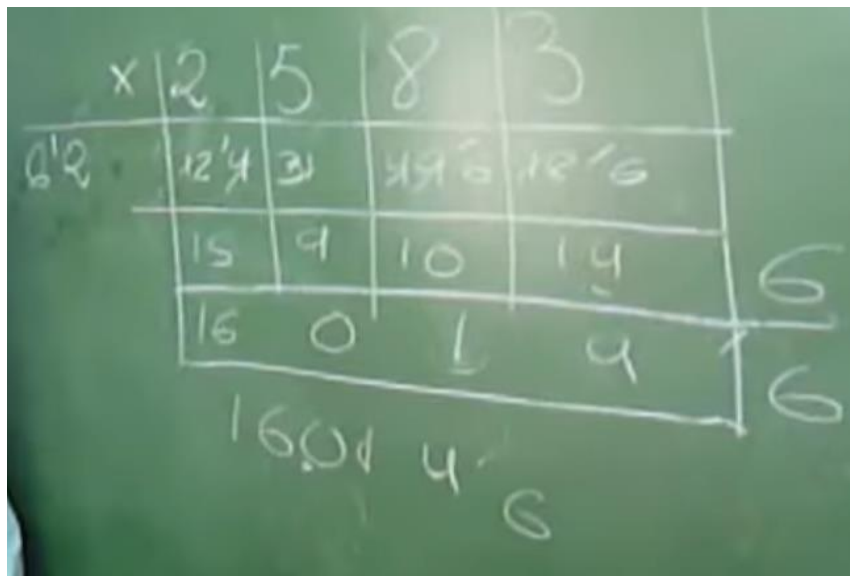 × 2 5 8 3
6'2 12'4 31 49'6 18'6
15 9 10 14 6
16 0 1 4 ' 6
16014'6